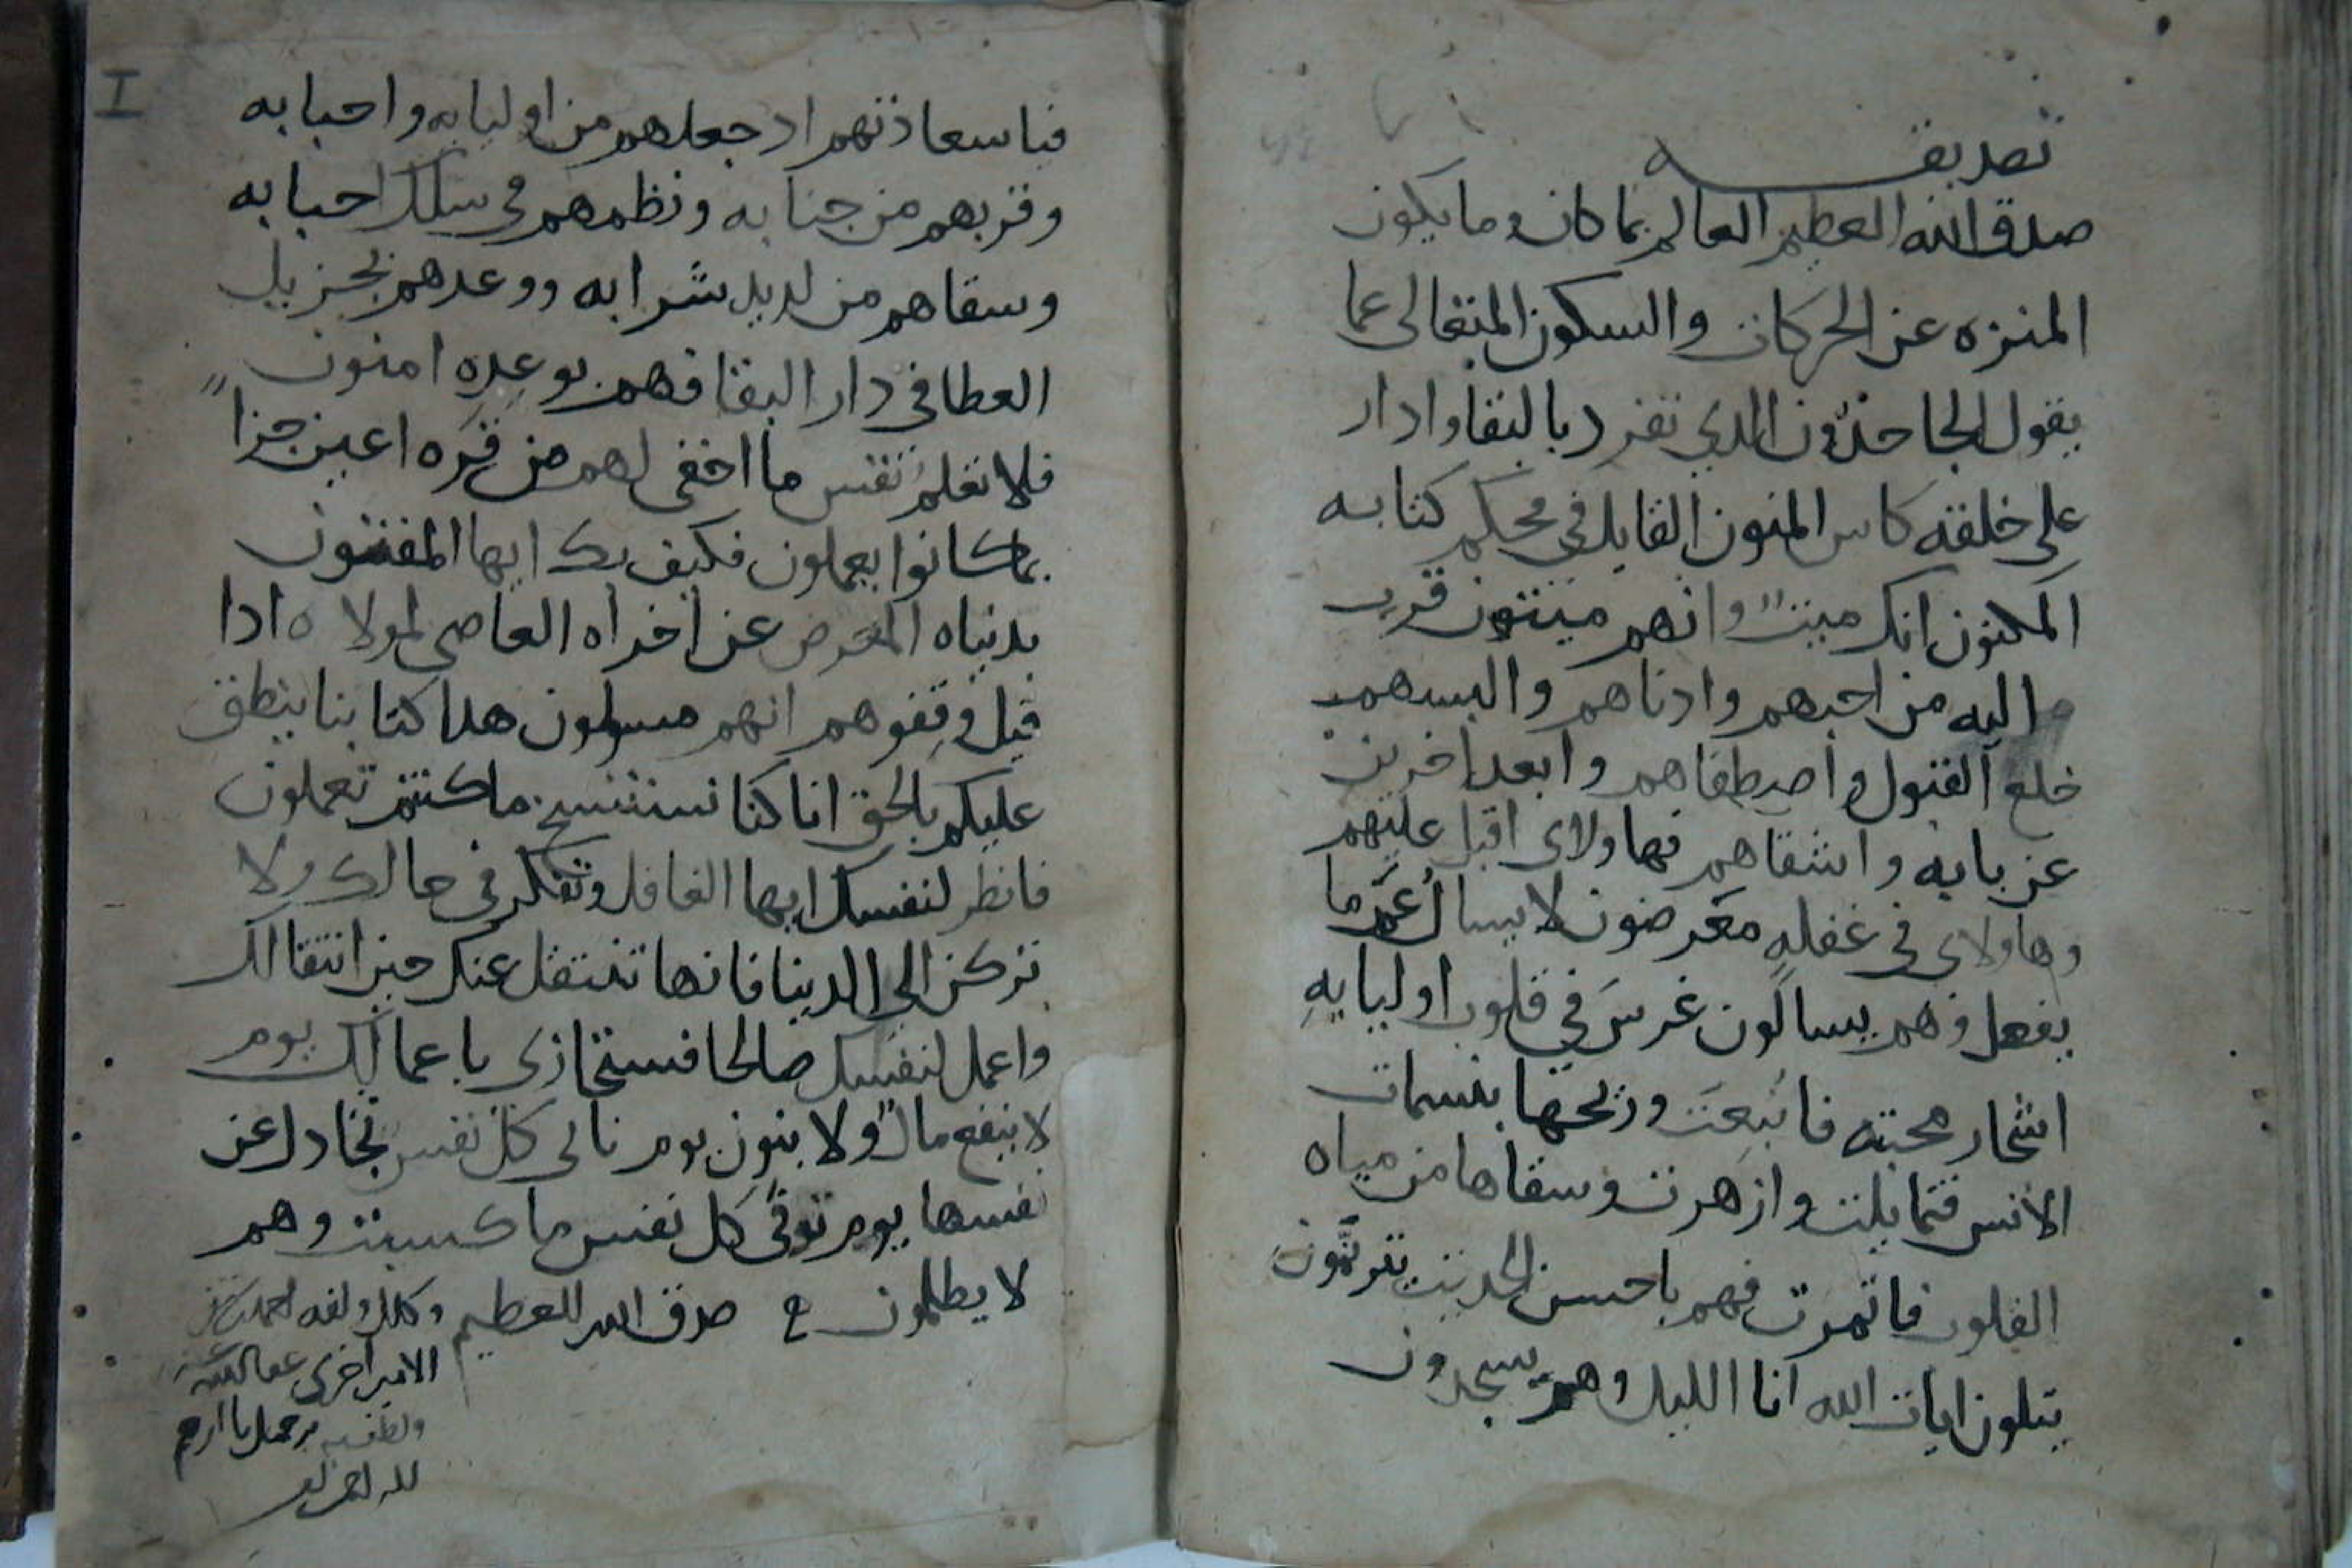 تصديقه
صدق الله العظيم العالم بما كان وما يكون
المنزه عن الحركات والسكون المتعالى عما
يقول الجاحدون الدي تفرد بالبقا وادار
على خلقه كاس المنون القايل في محكم كتابه
المكنون انك ميتٌ وانهم ميتون قرب
اليه من احبهم وادناهم والبسهم
خلع القبول واصطفاهم وابعد اخرين
عن بابه واشقاهم فهاولاى اقبل عليهم
وهاولاى في غفلهٍ معرضون لا يسالُ عَمّا
يفعل وهم يسالون غرسَ في قلوب اوليايهِ
اشجار محبته فاينعَت وريحها بنسمات
الانس فتمايلت وازهرت وسقاها من مياه
القلوب فاثمرت فهم باحسن الحديث يترنَّمونَ
يتلون ايات الله انا الليل وهم يسجدون
فيا سعادتهم اد جعلهم من اوليابه واحبابه
وقربهم من جنابه ونظمهم في سلك احبابه
وسقاهم من لديد شرابه ووعدهم بجزيل
العطا في دار البقا فهم بوعدِه امنون
فلا تعلمُ نفس ما اخفى لهم من قرَه اعين جزاً
بما كانوا يعملون فكيف بك ايها المفتون
بدنياه المعرض عن اخراه العاصي لمولاه ادا
قيل وقِفوهم انهم مسولون هدا كتابنا ينطق
عليكم بالحق انا كنا نستنسخ ما كنتم تعملون
فانظر لنفسك ايها الغافل وتفكر في حالك ولا
تركن الى الدينا فانها تنتقل عنك حين انتقالك
واعمل لنفسك صالحا فستجازى باعمالك يوم
لا ينفع مالٌ ولا بنون يوم تاتى كل نفس تجادل عن
نفسها يوم توفى كل نفس ما كسبت وهم
لا يظلمون صدق الله العظيم
الامير اخرى عفا الله عنه